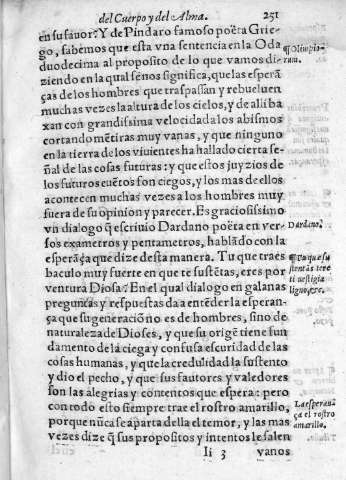 del Cuerpo y del Alma. 251
en su fauor: Y de Pindaro famoso poëta Grie-
go, sabemos que esta vna sentencia en la Oda
duodecima al proposito de lo que vamos di-
ziendo en la qual se nos significa, que las esperã
ças de los hombres que traspassan y rebueluen
muchas vezes la altura de los cielos, y de alli ba
xan con grandissima velocidad a los abismos
cortando mẽtiras muy vanas, y que ninguno
en la tierra de los viuientes ha hallado cierta se-
ñal de las cosas futuras: y que estos juyzios de
los futuros euẽtos son ciegos, y los mas de ellos
acontecen muchas vezes a los hombres muy
fuera de su opinion y parecer. Es graciosissimo
vn dialogo q̃ escriuio Dardano poëta en ver-
sos exametros y pentametros, hablãdo con la
esperãça que dize desta manera. Tu que traes
baculo muy fuerte en que te sustẽtas, eres por
ventura Diosa? En el qual dialogo en galanas
preguntas y respuestas da a entẽder la esperan-
ça que su generaciõ no es de hombres, sino de
naturaleza de Dioses, y que su origẽ tiene fun
damento de la ciega y confusa escuridad de las
cosas humanas, y que la credulidad la sustento
y dio el pecho, y que sus fautores y valedores
son las alegrias y contentos que espera: pero
con todo esto siempre trae el rostro amarillo,
porque nũca se aparta della el temor, y las mas
vezes dize q̃ sus propositos y intentos le salen
Ii 3 vanos
¶Olimpio-
rum.
Dardano.
¶Tu que su
stentãs tere
ti vestigia
ligno, &c.
La esperan
ça el rostro
amarillo.